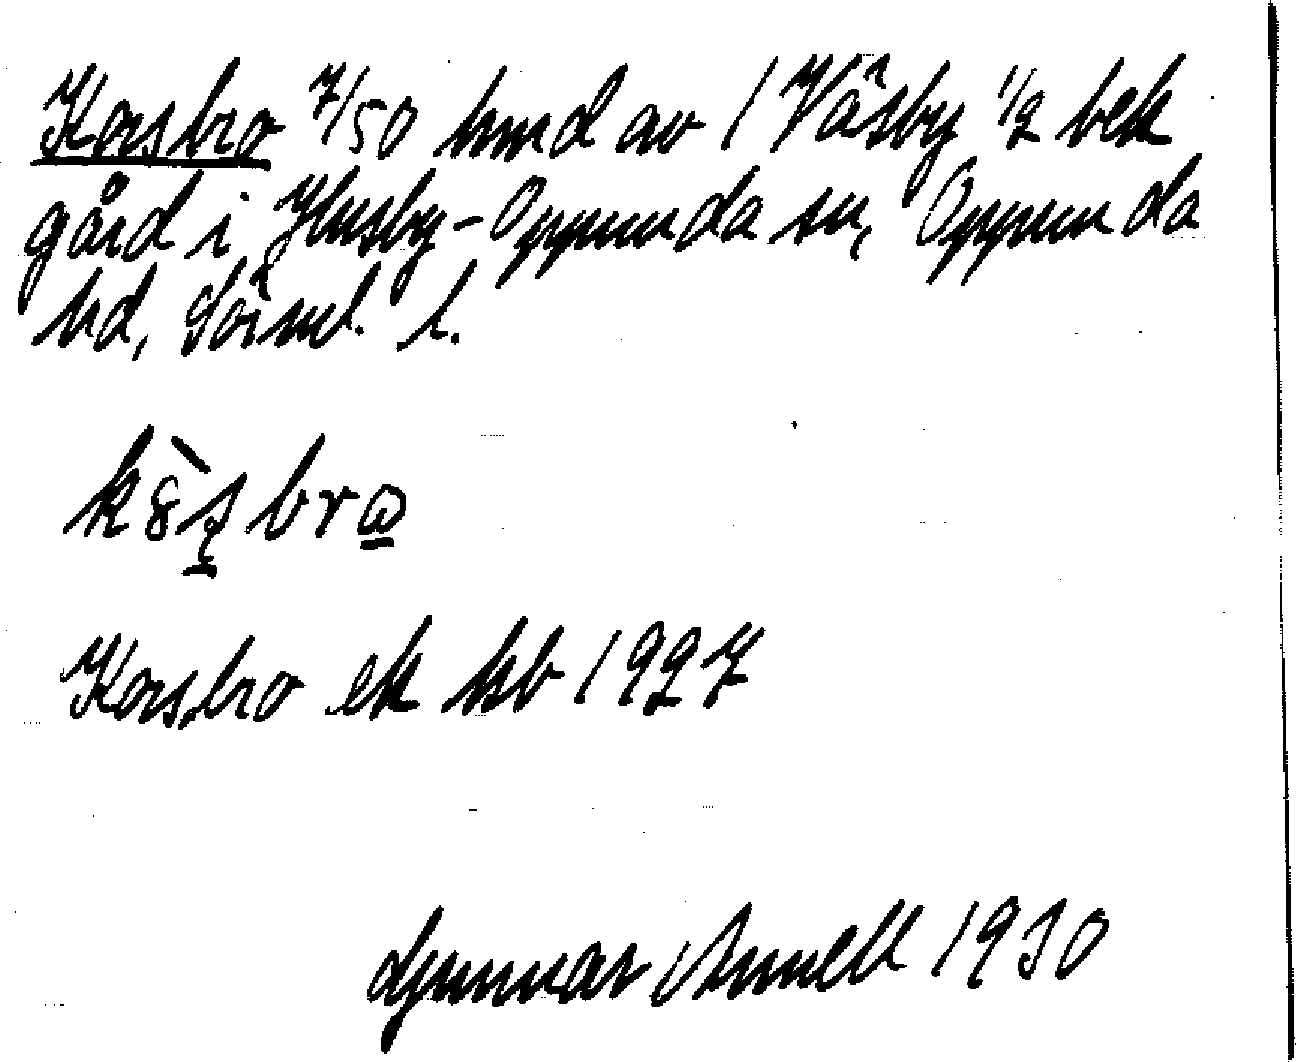 Korsbro 7/50 hmd av 1 Väsby 1/2 bek
gård i Husby-Oppunda sn, Oppunda
hd, Sörml. l.
Korsbro ek kb 1927
Gunnar Annell 1930